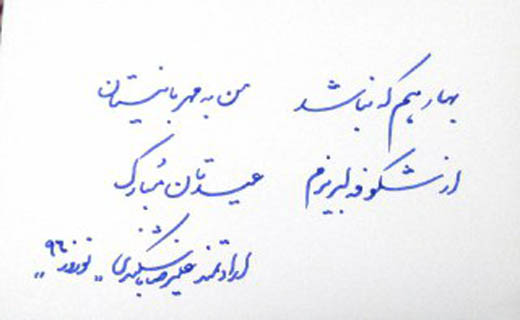 بهار هم که نباشد من به مهربانیتان
از شکوفه لبریزم عیدتان مبارک
ارادتمند علیرضا "نوروز ۹۶"